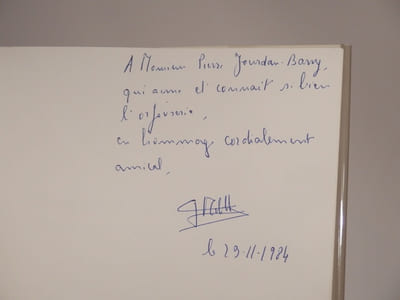 A Monsieur Pierre Jourdan-Barry,
qui aime et connait si bien
l'orfèvrerie,
en hommage cordialement
amical,
le 29-11-1984